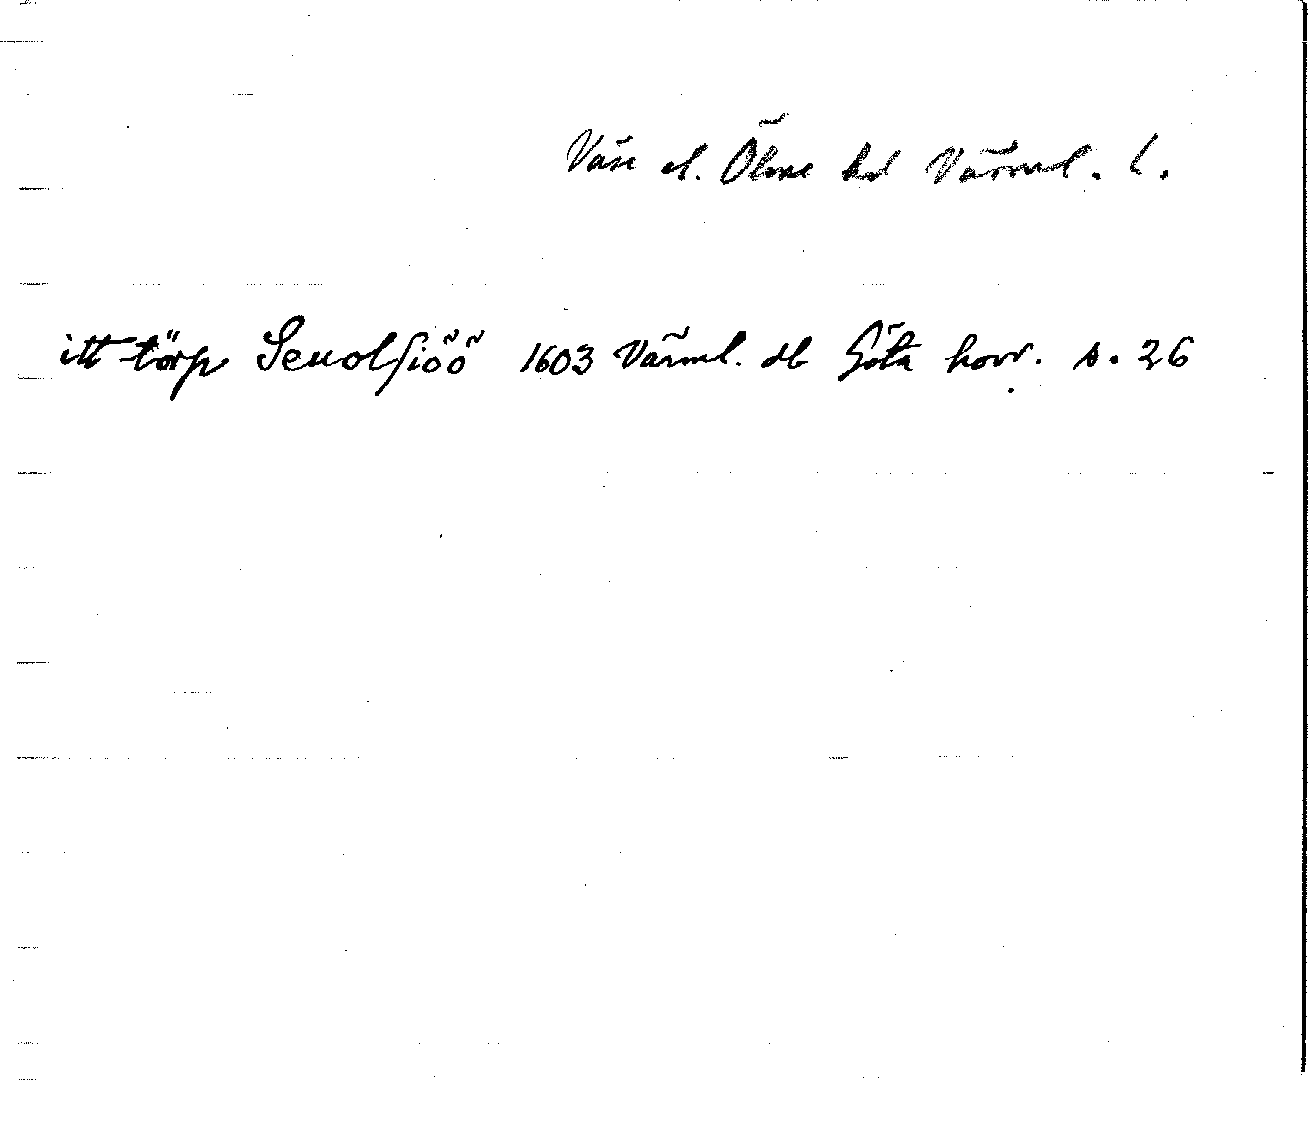 Väse el. Ölme hd Värml. l.
itt törp Seuolsiöö 1603 Värml. db Göta hovr. s. 26